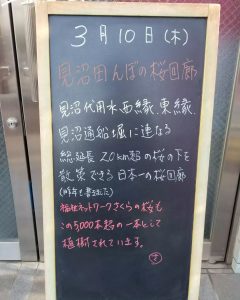 3月10日(木)
見沼田んぼの桜回廊
見沼代用水西縁、東縁、
見沼通船堀に連なる
総延長20km超の桜の下を
散策できる日本一の桜回廊
(昨年も書きました)
福祉ネットワークさくらの桜も
この5,000本超の一本として
植樹されています。